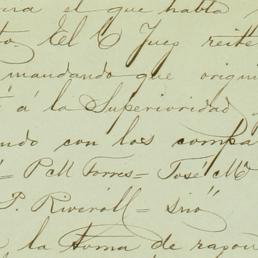 el que habla
to. El C Juez reite
mandando que origi
á la Superioridad
ndo con los compa
= P M Torres = José Ma
P. Riveroll = srio"
la toma de razon